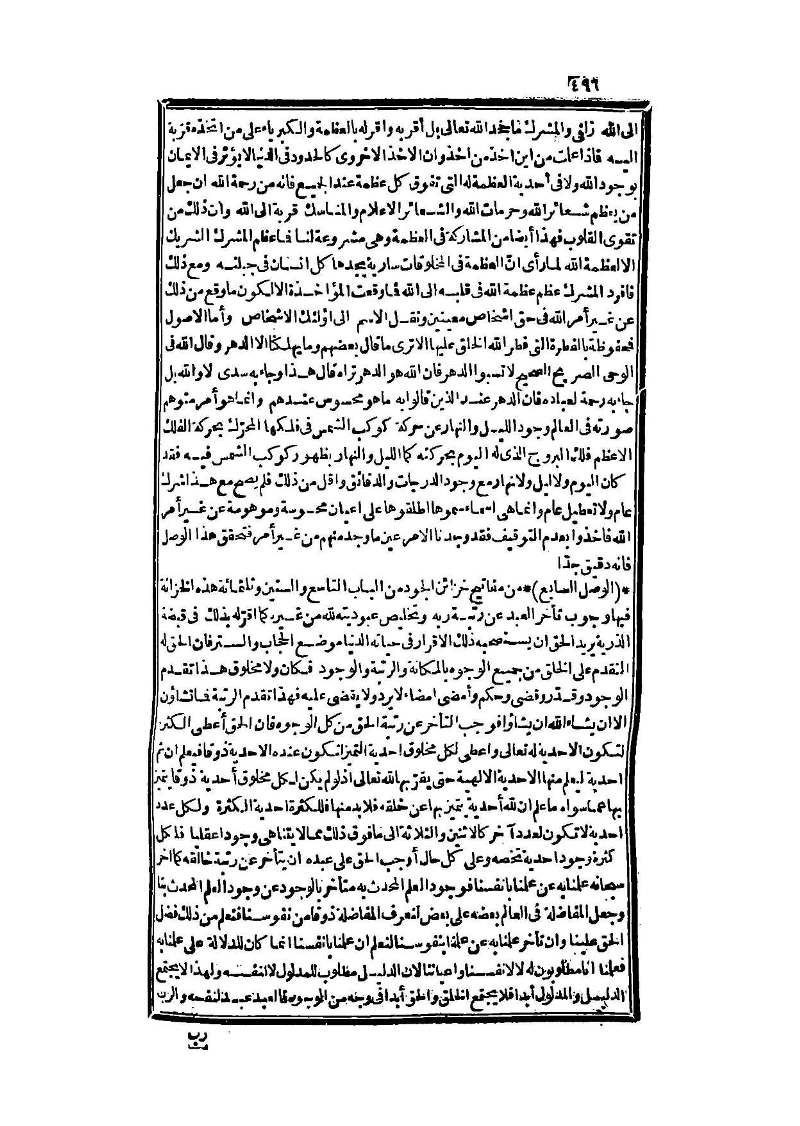 ٤٩٦
الى الله زلفى والمشرك فما جحد الله تعالى بل أقر به واقر له بالعظمة والكبرياء على من اتخذه قربة
اليه فاذا علمت من اين اخذ من اخذ وان الاخذ الاخروى كالحدود فى الدنيا لا يؤثر فى الايمان
بوجود الله ولا فى أحدية العظمة له التى تفوق كل عظمة عند الجميع فانه من رحمة الله ان جعل
من يعظم شعائر الله وحرمات الله والشعائر الاعلام والمناسك قربة الى الله وان ذلك من
تقوى القلوب فهذا أيضا من المشاركة فى العظمة وهى مشروعة لنا فما عظم المشرك الشريك
الا لعظمة الله لما رأى ان العظمة فى المخلوقات سارية يجدها كل انسان فى جبلته ومع ذلك
فافرد المشرك عظم عظمة الله فى قلبه الى الله فما وقعت المؤاخذة الا لكون ما وقع من ذلك
عن غير أمر الله فى حق اشخاص معينين ونقل الاسم الى اولئك الاشخاص وأما الاصول
فمحفوظة بالفطرة التى فطر الله الخلق عليها الا ترى ما قال بعضهم وما يهلكنا الا الدهر وقال الله فى
الوحى الصريح الصحيح لا تسبوا الدهر فان الله هو الدهر تراه قال هذا وجاء به سدى لا والله بل
جاء به رحمة لعباده فان الدهر عند الذين قالوا به ما هو محسوس عندهم وانما هو أمر متوهم
صورته فى العالم وجود الليل والنهار عن حركة كوكب الشمس فى فلكها المحرك بحركة الفلك
الاعظم فلك البروج الذى له اليوم بحركته كما الليل والنهار بظهور كوكب الشمس فيه فقد
كان اليوم ولا ليل ولا نهار مع وجود الدرجات والدقائق واقل من ذلك فلم يصح مع هذا شرك
عام ولا تعطيل عام وانما هى اسماء سموها اطلقوها على اعيان محسوسة وموهومة عن غير أمر
الله فاخذوا بعدم التوقيف فقد وجدنا الامر عين ما وجد منهم من غير أمر فتحقق هذا الوصل
فانه دقيق جدا
*(الوصل السابع)* من مفاتيح خزائن الجود من الباب التاسع والستين وثلثمائة هذه الخزانة
فيها وجوب تأخر العبد عن رتبة ربه وتخليص عبوديته لله من غير ... كما اقر له بذلك فى قبضة
الذرية يريد الحق ان يستصحبه ذلك الاقرار فى حياته الدنيا موضع الحجاب والستر فان الحق له
التقدم على الخلق من جميع الوجوه بالمكانة والرتبة والوجود فكان ولا مخلوق هذا تقدم
الوجود وقدر وقضى وحكم وأمضى امضاء لا يرد ولا يقضى عليه فهذا تقدم الرتبة فما تشاؤن
الا ان يشاء الله ان يشاؤا فوجب التأخر عن رتبة الحق من كل الوجوه فان الحق أعطى الكثرة
لتكون الاحدية له تعالى واعطى لكل مخلوق احدية التميز لتكون عنده الاحدية ذوقا فيعلم ان ثم
احدية ليعلم منها الاحدية الالهية حتى يقر بها لله تعالى اذ لو لم يكن لكل مخلوق أحدية ذوقا يتميز
بها عما سواه ما علم ان لله أحدية يتميز بها عن خلقه فلا بد منها فللكثرة احدية الكثرة ولكل عدد
احدية لا تكون لعدد آخر كالاثنين والثلاثة الى ما فوق ذلك مما لا يتناهى وجودا عقليا فلكل
كثرة وجود احدية تخصه وعلى كل حال أوجب الحق على عبده ان يتأخر عن رتبة خالقه كما اخر
سبحانه علمنا به عن علمنا بانفسنا فوجود العلم المحدث به متأخر بالوجود عن وجود العلم المحدث بنا
وجعل المفاضلة فى العالم بعضه على بعض لنعرف المفاضلة ذوقا من نفوسنا فنعلم من ذلك فضل
الحق علينا وان تأخر علمنا به عن علمنا بنفوسنا لنعلم ان علمنا بانفسنا انما كان للدلالة على علمنا به
فعلمنا انا مطلوبون له لا لانفسنا واعياننا لان الدليل مطلوب للمدلول لا لنفسه ولهذا لا يجتمع
الدليل والمدلول أبدا فلا يجتمع الخلق والحق أبدا فى وجه من الوجوه فالعبد عبد لنفسه والرب
رب